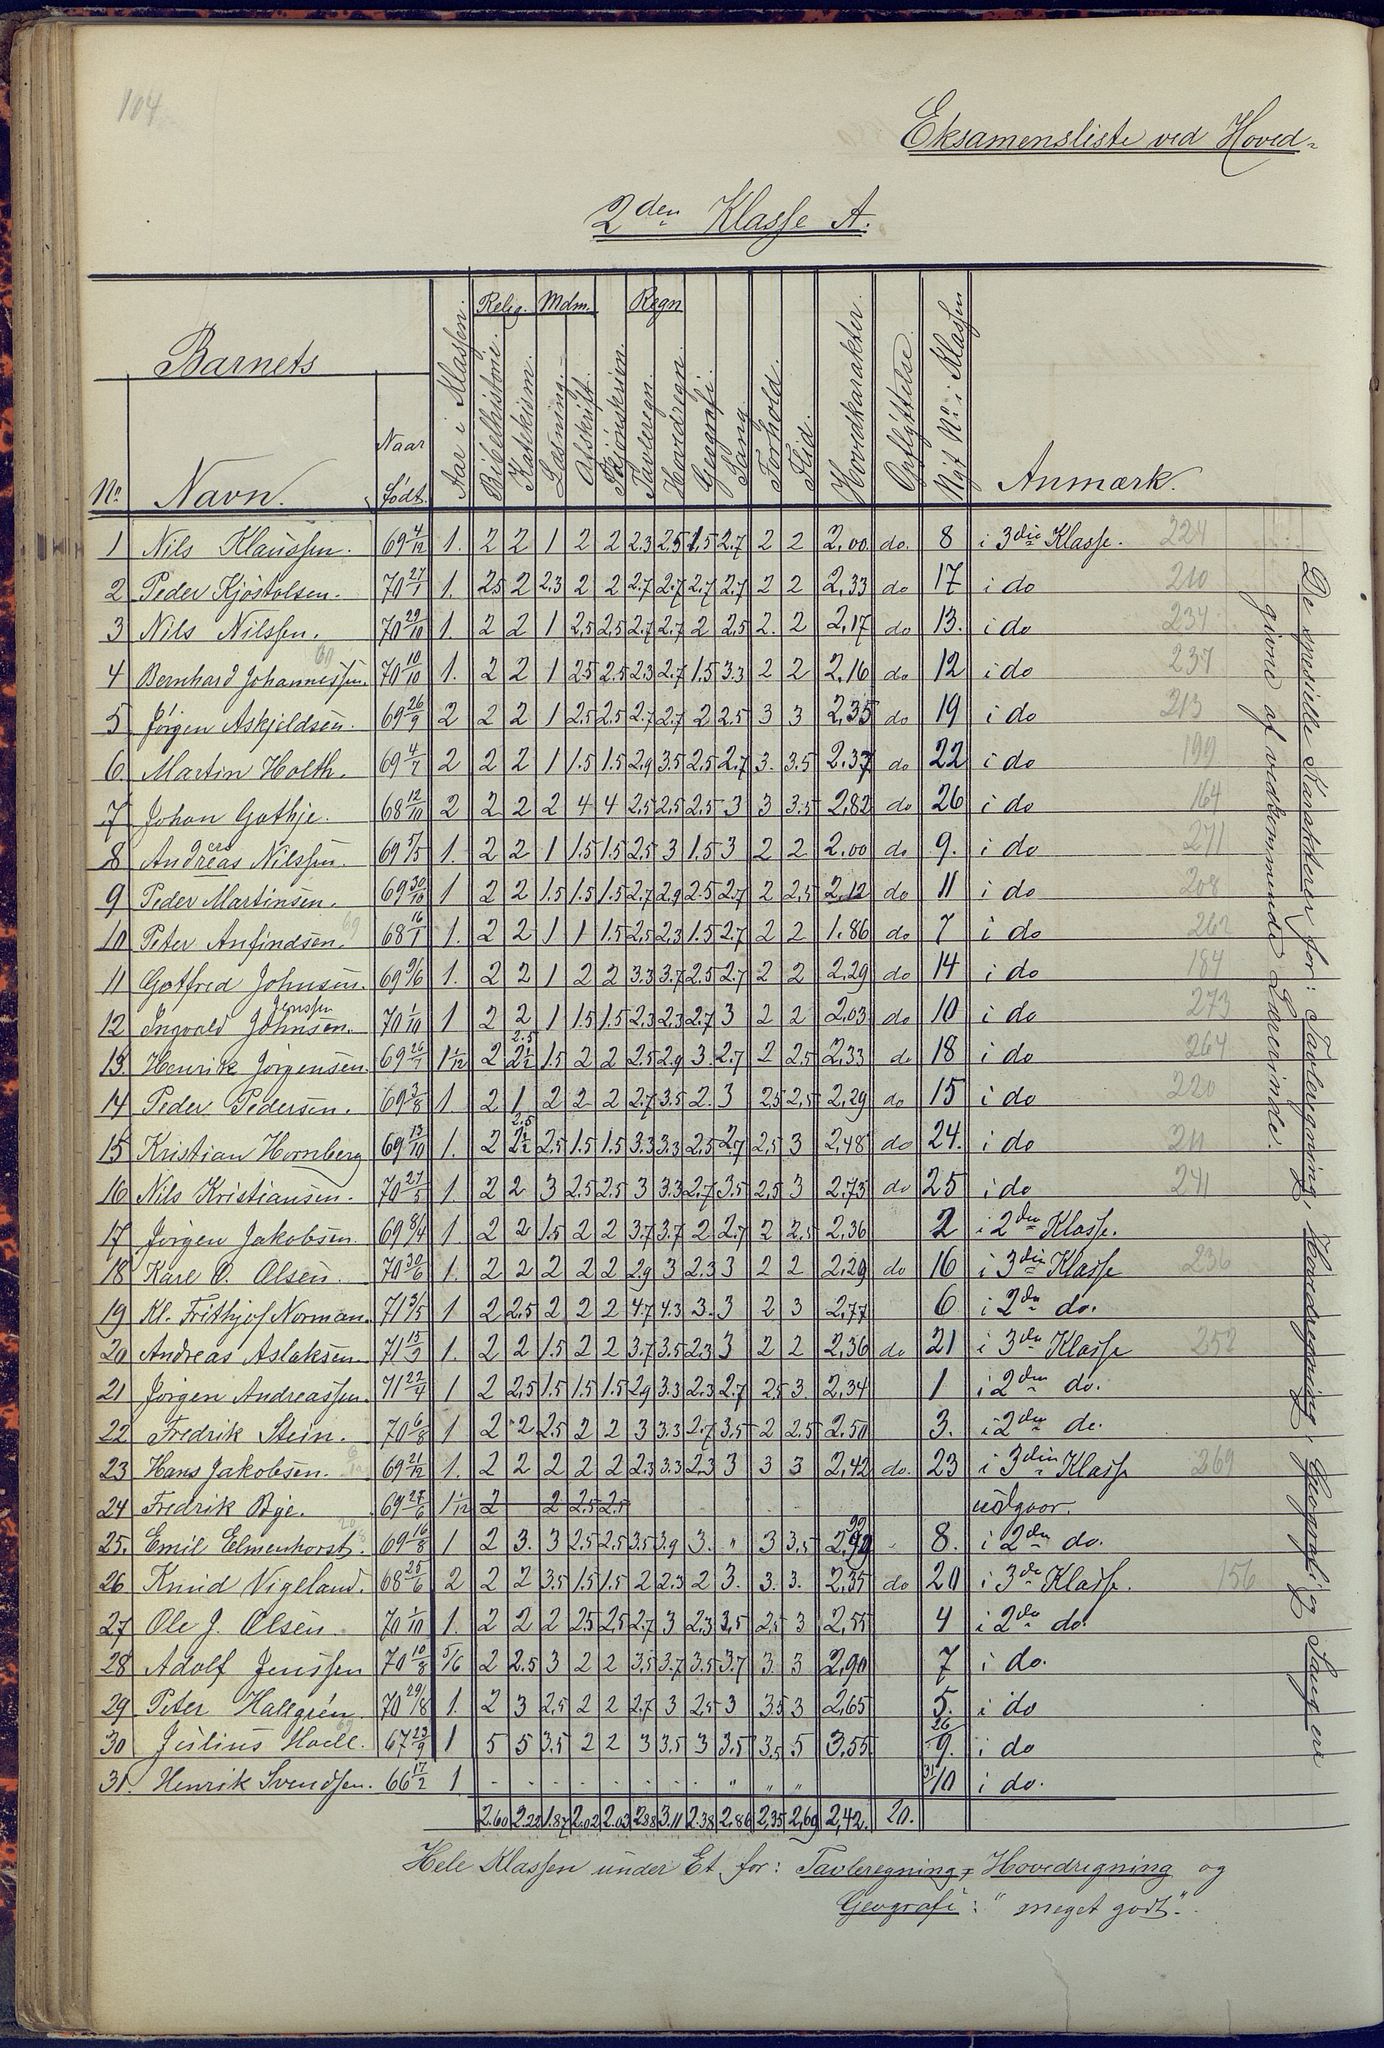 104
Eksamensliste ved Hoved-
2den Klasse A.
Barnets
Relig. Mdm. Regn
No. Navn. Naar født. Aar i Klassen. Bibelhistorie. Katekism. Læsning. Afskrift. Skjönskrivn. Tavleregn. Hovedregn. Geografi. Sang. Forhold. Flid. Hovedkarakter. Opflyttelse. Nyt No. i Klassen Anmærk.
1 Nils Klaussen. 69 4/12 1. 2 2 1 2 2 2.3 2.5 1.5 2.7 2 2 2,00 do. 8 i 3die Klasse. 224
2 Peder Kjöstolsen. 70 27/1 1. 2.5 2 2.3 2 2 2.7 2.7 2.7 2.7 2 2 2,33 do 17 i do 210
3 Nils Nilssen. 70 29/10 1. 2 2 1 2.5 2.5 2.7 2.7 2 2.5 2. 2 2,17 do 13. i do 234
4 Bernhard Johannessen. 69 70 10/10 1. 2 2 1 2.5 2.5 2.3 2.7 1.5 3.3 2 2 2,16 do 12 i do 237
5 Jørgen Askjeldsen. 69 26/9 2 2 2 1 2.5 2.5 2.7 2.7 2 2.5 3 3 2,35 do 19 i do 213
6 Martin Holth. 69 4/7 2 2 2 1 1.5 1.5 2.9 3.5 2.5 2.7 3. 3.5 2.37 do 22 i do 199
7 Johan Gathje. 68 12/10 2 2 2 2 4 4 2.5 2.5 2.5 3 3 3.5 2,82 do 26 i do 164
8 Andreas Nilssen. 69 5/5 1. 2 2 1 1.5 1.5 2.5 3 1.5 3 2 2 2,00 do 9. i do 271
9 Peder Martinsen. 69 30/10 1 2 2 1.5 1.5 1.5 2.7 2.9 2.5 2.7 2 2,5 2,12 do 11 i do 208
10 Peter Anfindsen. 69 68 16/1 1. 2 2 1 1 1.5 2,5 2,3 1.5 2.7 2 2 1.86 do 7 i do 262
11 Gotfred Johnsen. 69 9/6 1. 2 2 1 2 2 3.3 3.7 2.5 2.7 2 2 2,29 do 14 i do 184
12 Ingvald Johnsen. Jenssen 70 1/10 1 2 2 1 1.5 1.5 2.3 2.3 2.7 3 2 2 2,03 do 10 i do 273
13. Henrik Jörgensen. 69 26/7 1 1/12 2 2 1/2 2.5 1.5 2 2 2.5 2.9 3. 2.7 2 2,5 2,33 do 18 i do 264
14 Peder Pedersen. 69 3/8 1. 2 1 2 2 2 2.7 3.5 2. 3 2.5 2,5 2,29 do 15 i do 220
15 Kristian Hornberg 69 13/10 1. 2 2 1/2 2.5 2,5 1.5 1.5 3.3 3.3 2,5 2,7 2,5 3 2,48 do 24. i do 211
16 Nils Kristiansen. 70 27/5 1. 2 2 3 2.5 2.5 3 3.3 2.7 3.5 2,5 3 2,73 do 25 i do 241
17 Jørgen Jakobsen. 69 8/4 1. 2 2 1.5 2 2 3.7 3.7 2 2.7 2 2,5 2,36 2 i 2den Klasse.
18 Karl O. Olsen. 70 30/6 1. 2 2 2 2 2 2.9 3 2.3 3 2 2 2,29 do 16 i 3die Klasse 236
19 Kl. Frithjof Norman. 71 3/5 1. 2 2,5 2 2 2 4.7 4.3 3. 3 2 3 2,77 6 i 2den do.
20 Andreas Aslaksen. 71 13/3 1. 2 2 1.5 2 2 3.7 3.5 2.3 3 2 2 2,36 do 21 i 3die Klasse 252
21 Jørgen Andreassen. 71 22/4 1 2 2,5 1.5 1.5 1.5 2.9 3.3 2.3 2.7 2.5 3 2,34 1 i 2den do.
22 Fredrik Stein. 70 6/8 1 2 2 2.5 2 2 3 3.3 2.7 3.5 2 2.5 2,50 3. i 2den do.
23 Hans Jakobsen. 69 21/12 1. 2 2 2 2 2 2.3 3.3 2.3 3 3 3 2,42 do. 23 i 3die Klasse 269
24 Fredrik Bye. 69 27/6 1 1/12 2 2 2.5 2.5 udgaar.
25. Emil Elmenhorst. 69 16/8 1 2 3. 3 2.5 2.5 3.5 3.9 3. " 3 3,5 2,92 90 8. i 2den do.
26 Knud Vigeland. 68 25/6 2 2 2 3.5 1.5 1.5 2 2.3 2 3. 3. 3. 2,35 do 20 i 3die Klasse. 156
27 Ole J. Olsen. 70 1/10 1. 2 2 2 2.5 2,5 2.7 3 2.3 3,5 2,5 3 2,55 4 i 2den do.
28 Adolf Jenssen 70 10/8 5/6 2 2.5 3 2 2 3.5 3.7 3.5 3.7 3. 3 2,90 7 i do.
29 Peter Hallgren. 70 29/8 1. 2 3 2.5 2 2 2.7 3 2,5 3 3.5 3 2,65 5. i do
30 Julius Hoell. 67 23/9 1 5 5 3.5 2 2 3 3.5 3 3.5 3.5 5 3,55 26 9. i do
31. Henrik Svendsen. 66 17/2 1 . . . . . . . . " " " 31 10 i do.
2.60 2.22 1.87 2.02 2.03 2.88 3.11 2.38 2.86 2,35 2,69 2,42. 20.
Hele Klassen under Et for: Tavleregning, Hovedregning og
Geografi: "meget godt".
De specielle Karakterer for: Tavleregning, Hovedregning, Geografi og Sang ere
givne af vedkommende Lærerinde.